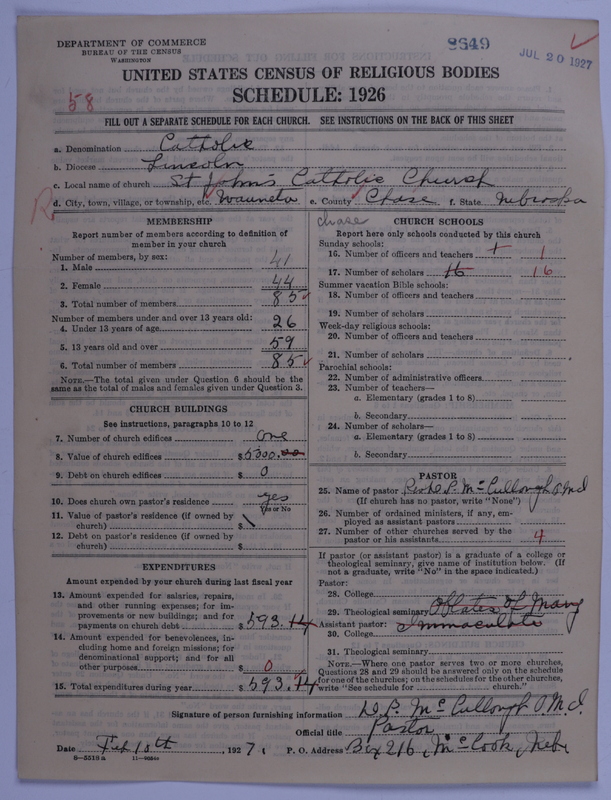 DEPARTMENT OF COMMERCE
BUREAU OF THE CENSUS
WASHINGTON
8649
JUL 20 1927
UNITED STATES CENSUS OF RELIGIOUS BODIES
SCHEDULE: 1926
58
FILL OUT A SEPARATE SCHEDULE FOR EACH CHURCH. SEE INSTRUCTIONS ON THE BACK OF THIS SHEET
a. Denomination Catholic
b. Diocese Lincoln
c. Local name of church St John's Catholic Church
d. City, town, village, or township, etc. Wauneta e. County Chase f. State Nebraska
R
chase
MEMBERSHIP
Report number of members according to definition of
member in your church
Number of members, by sex:
1. Male 41
2. Female 44
3. Total number of members 85
Number of members under and over 13 years old:
4. Under 13 years of age 26
5. 13 years old and over 59
6. Total number of members 85
NOTE.—The total given under Question 6 should be the
same as the total of males and females given under Question 3.
CHURCH BUILDINGS
See instructions, paragraphs 10 to 12
7. Number of church edifices One
8. Value of church edifices $5300.00
9. Debt on church edifices $ 0
10. Does church own pastor's residence yes
Yes or No
11. Value of pastor's residence (if owned by
church) $
12. Debt on pastor's residence (if owned by
church) $
EXPENDITURES
Amount expended by your church during last fiscal year
13. Amount expended for salaries, repairs,
and other running expenses; for im-
provements or new buildings; and for
payments on church debt $ 593.14
14. Amount expended for benevolences, in-
cluding home and foreign missions; for
denominational support; and for all
other purposes $ 0
15. Total expenditures during year $ 593.14
CHURCH SCHOOLS
Report here only schools conducted by this church
Sunday schools:
16. Number of officers and teachers 1 1
17. Number of scholars 16 16
Summer vacation Bible schools:
18. Number of officers and teachers
19. Number of scholars
Week-day religious schools:
20. Number of officers and teachers
21. Number of scholars
Parochial schools:
22. Number of administrative officers
23. Number of teachers—
a. Elementary (grades 1 to 8)
b. Secondary
24. Number of scholars—
a. Elementary (grades 1 to 8)
b. Secondary
PASTOR
25. Name of pastor Rev D. P. McCullough O.M.I
(If church has no pastor, write "None")
26. Number of ordained ministers, if any, em-
ployed as assistant pastors
27. Number of other churches served by the
pastor or his assistants 4
If pastor (or assistant pastor) is a graduate of a college or
theological seminary, give name of institution below. (If
not a graduate, write "No" in the space indicated.)
Pastor:
28. College
29. Theological seminary Oblates of Mary
Assistant pastor: Immaculate
30. College
31. Theological seminary
NOTE.—Where one pastor serves two or more churches,
Questions 28 and 29 should be answered only on the schedule
for one of the churches; on the schedules for the other churches,
write "See schedule for church."
Signature of person furnishing information D. P. McCullough O.M.I.
Official title Pastor
Date Feb 18th, 1927 P. O. Address Box 216, McCook, Neb
8—5518a 11—9088